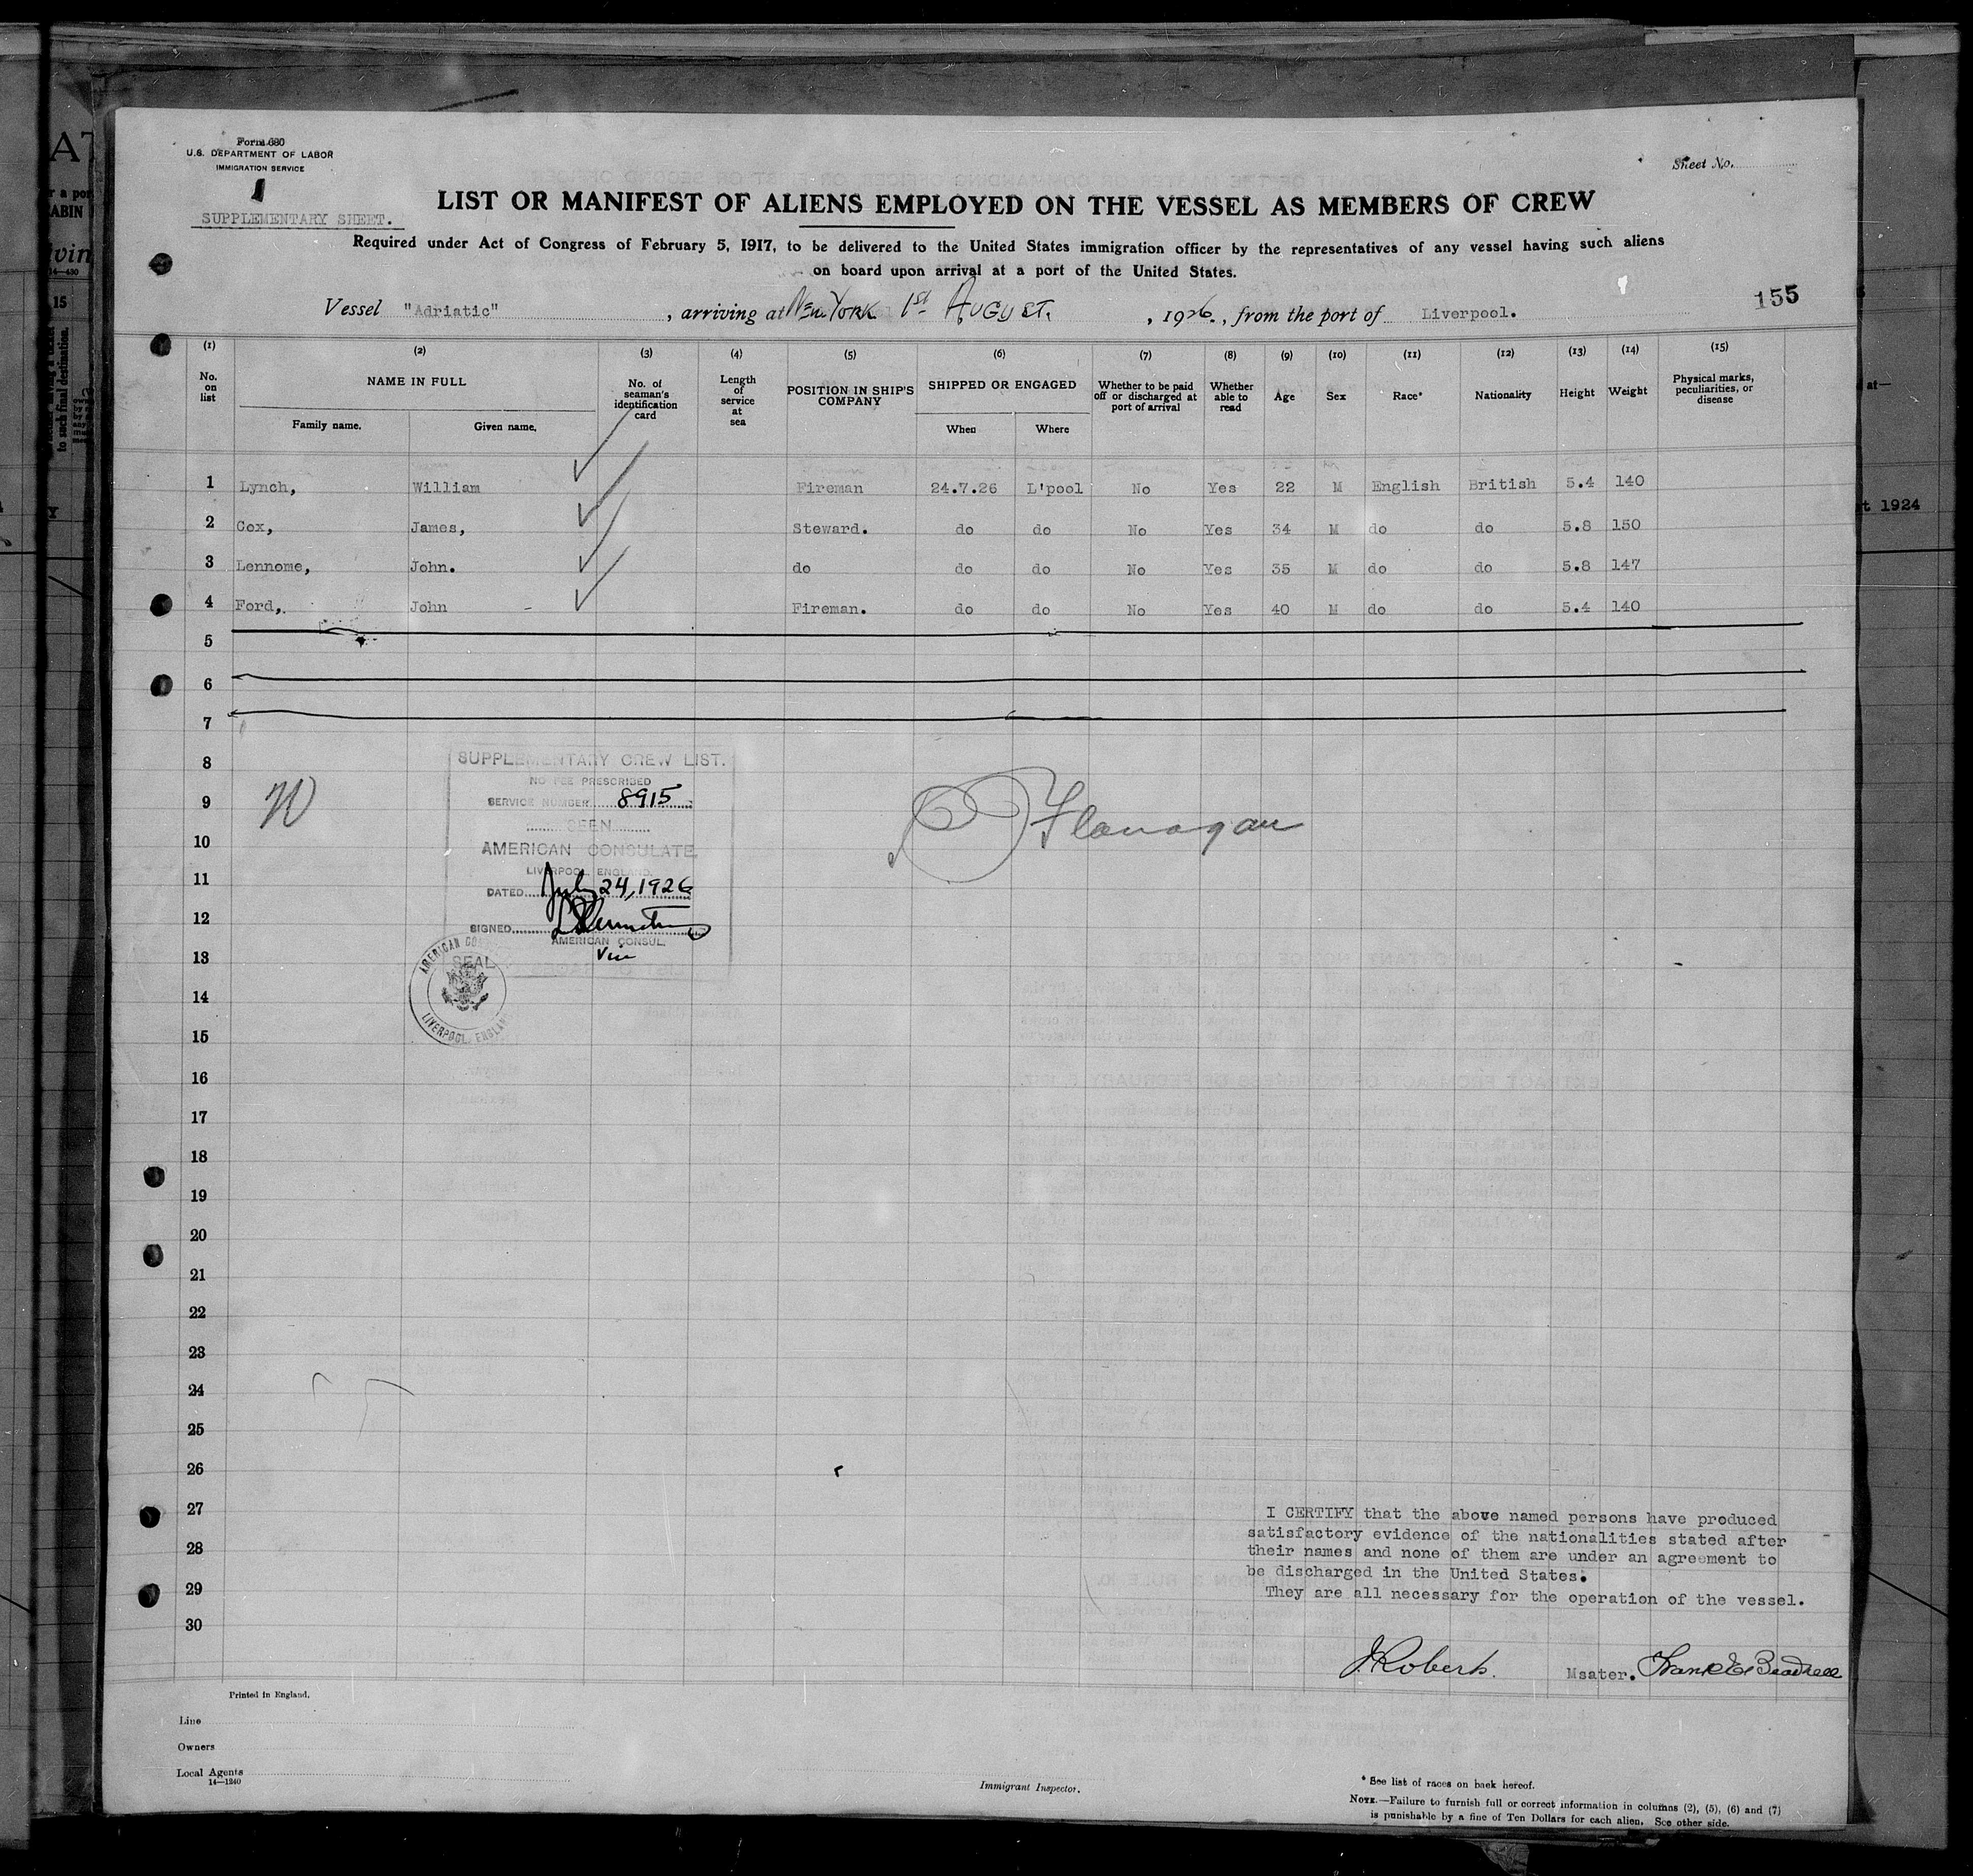 Form 680
U.S. DEPARTMENT OF LABOR
IMMIGRATION SERVICE
SUPPLEMENTARY SHEET.
Sheet No.
LIST OR MANIFEST OF ALIENS EMPLOYED ON THE VESSEL AS MEMBERS OF CREW
Required under Act of Congress of February 5, 1917, to be delivered to the United States immigration officer by the representatives of any vessel having such aliens
on board upon arrival at a port of the United States.
155
Vessel "Adriatic", arriving at New York 1st August, 1926, from the port of Liverpool.
(1) (2) (3) (4) (5) (6) (7) (8) (9) (10) (11) (12) (13) (14) (15)
No. on list NAME IN FULL Family name. Given name. No. of seaman's identification card Length of service at sea POSITION IN SHIP'S COMPANY SHIPPED OR ENGAGED When Where Whether to be paid off or discharged at port of arrival Whether able to read Age Sex Race* Nationality Height Weight Physical marks, peculiarities, or disease
1 Lynch, William Fireman 24.7.26 L'pool No Yes 22 M English British 5.4 140
2 Cox, James, Steward. do do No Yes 34 M do do 5.8 150
3 Lennome, John. do do do No Yes 35 M do do 5.8 147
4 Ford, John - Fireman. do do No Yes 40 M do do 5.4 140
5
6
7
8
9
10
11
12
13
14
15
16
17
18
19
20
21
22
23
24
25
26
27
28
29
30
W
SUPPLEMENTARY CREW LIST.
NO FEE PRESCRIBED
SERVICE NUMBER 8915
SEEN
AMERICAN CONSULATE,
LIVERPOOL, ENGLAND.
DATED July 24, 1926
SIGNED
AMERICAN CONSUL.
Vice
SEAL
LIVERPOOL, ENGLAND
O'Flanagan
I CERTIFY that the above named persons have produced
satisfactory evidence of the nationalities stated after
their names and none of them are under an agreement to
be discharged in the United States.
They are all necessary for the operation of the vessel.
J Roberts. Msater.
Printed in England.
Line
Owners
Local Agents
14—1240
Immigrant Inspector.
* See list of races on back hereof.
NOTE.—Failure to furnish full or correct information in columns (2), (5), (6) and (7)
is punishable by a fine of Ten Dollars for each alien. See other side.